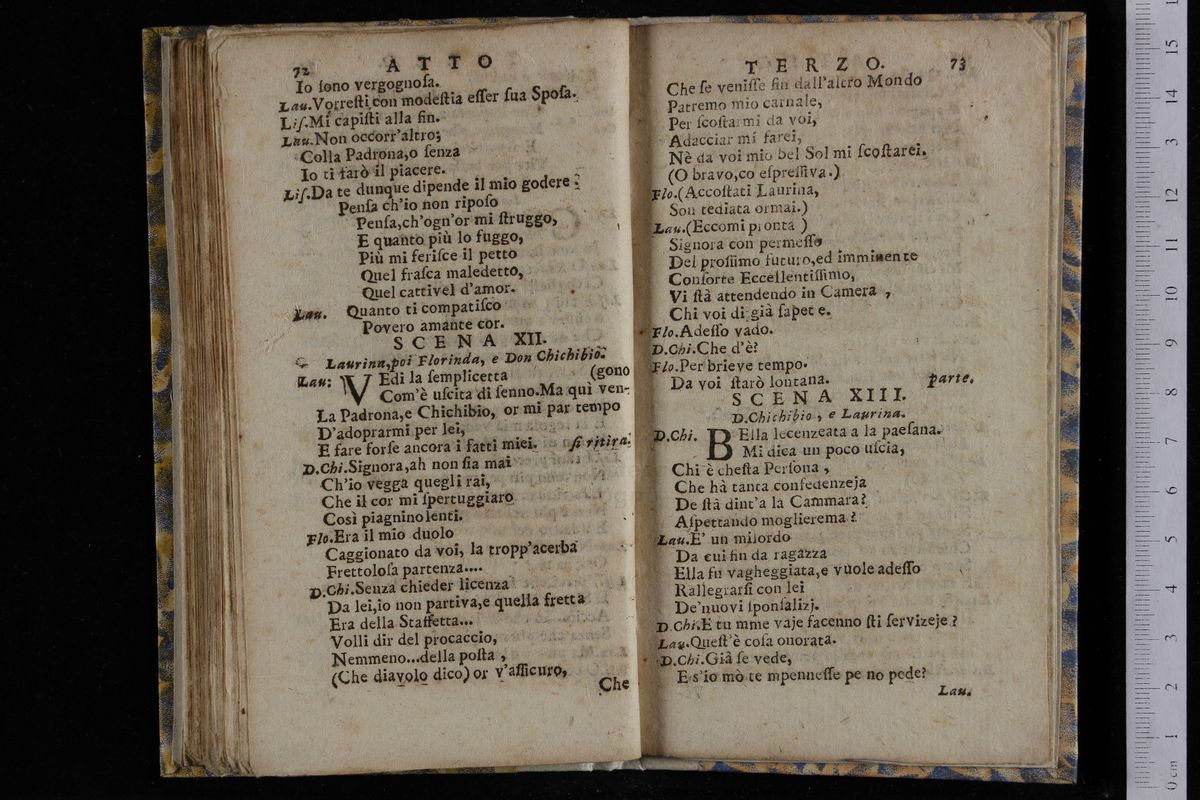 72 ATTO
Io ſono vergognoſa.
Lau. Vorreſti con modeſtia eſſer ſua Spoſa.
Liſ. Mi capiſti alla fin.
Lau. Non occorr'altro;
Colla Padrona, o ſenza
Io ti farò il piacere.
Liſ. Da te dunque dipende il mio godere;
Penſa ch'io non ripoſo
Penſa, ch'ogn'or mi ſtruggo,
E quanto più lo fuggo,
Più mi feriſce il petto
Quel fraſca maledetto,
Quel cattivel d'amor.
Lau. Quanto ti compatiſco
Povero amante cor.
SCENA XII.
Laurina, poi Florinda, e Don Chichibio.
Lau: VEdi la ſemplicetta (gono
Com'è uſcita di ſenno. Ma quì ven-
La Padrona, e Chichibio, or mi par tempo
D'adoprarmi per lei,
E fare forſe ancora i fatti miei. ſi ritira.
D.Chi. Signora, ah non ſia mai
Ch'io vegga quegli rai,
Che il cor mi ſpertuggiaro
Così piagnino lenti.
Flo. Era il mio duolo
Caggionato da voi, la tropp'acerba
Frettoloſa partenza....
D.Chi. Senza chieder licenza
Da lei, io non partiva, e quella fretta
Era della Staffetta...
Volli dir del procaccio,
Nemmeno...della poſta,
(Che diavolo dico) or v'aſſicuro,
Che
TERZO. 73
Che ſe veniſſe fin dall'altro Mondo
Patremo mio carnale,
Per ſcoſtarmi da voi,
Adacciar mi farei,
Nè da voi mio bel Sol mi ſcoſtarei.
(O bravo, co eſpreſſiva.)
Flo. (Accoſtati Laurina,
Son tediata ormai.)
Lau. (Eccomi pronta)
Signora con permeſſo
Del proſſimo futuro, ed imminente
Conſorte Eccellentiſſimo,
Vi ſtà attendendo in Camera,
Chi voi di già ſapete.
Flo. Adeſſo vado.
D.Chi. Che d'è?
Flo. Per brieve tempo.
Da voi ſtarò lontana. parte.
SCENA XIII.
D.Chichibio, e Laurina.
D.Chi. BElla lecenzeata a la paeſana.
Mi dica un poco uſcia,
Chi è cheſta Perſona,
Che hà tanta confedenzeja
De ſtà dint'a la Cammara?
Aſpettando moglierema?
Lau. E' un milordo
Da cui fin da ragazza
Ella fu vagheggiata, e vuole adeſſo
Rallegrarſi con lei
De'nuovi ſponſalizj.
D.Chi. E tu mme vaje facenno ſti ſervizeje?
Lau. Queſt'è coſa onorata.
D.Chi. Già ſe vede,
E s'io mò te mpenneſſe pe no pede?
Lau.
15
14
13
12
11
10
9
8
7
6
5
4
3
2
1
0 cm